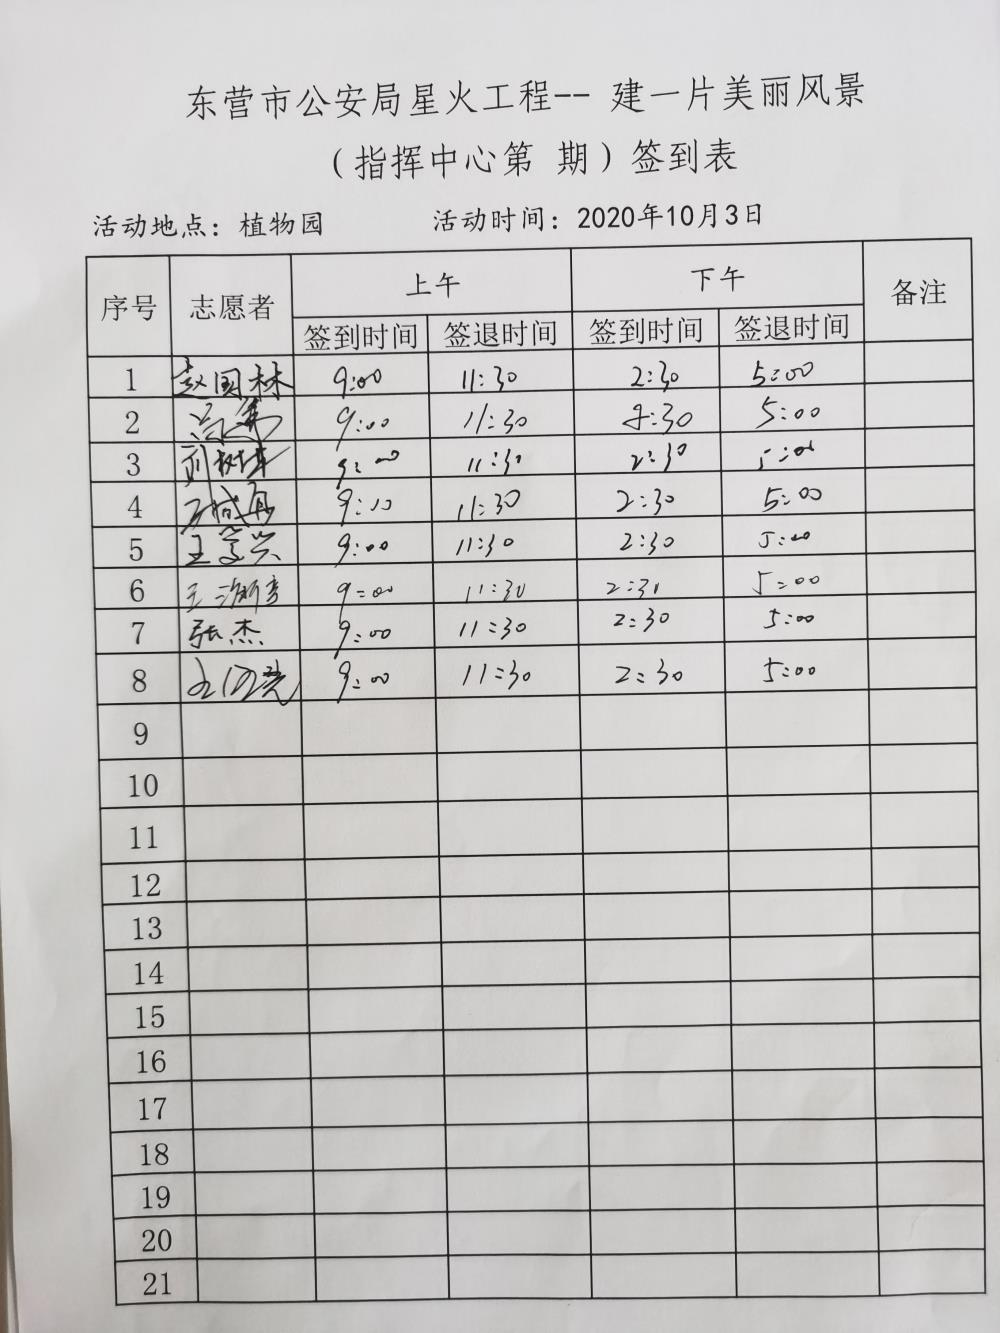 东营市公安局星火工程-- 建一片美丽风景
（指挥中心第 期）签到表
活动地点：植物园 活动时间：2020年10月3日
序号 志愿者 上午 下午 备注
签到时间 签退时间 签到时间 签退时间
1 赵国林 9:00 11:30 2:30 5:00
2 9:00 11:30 2:30 5:00
3 9:00 11:30 2:30 5:00
4 11:30 2:30 5:00
5 王学兴 9:00 11:30 2:30 5:00
6 9:00 11:30 2:30 5:00
7 张杰 9:00 11:30 2:30 5:00
8 9:00 11:30 2:30 5:00
9
10
11
12
13
14
15
16
17
18
19
20
21